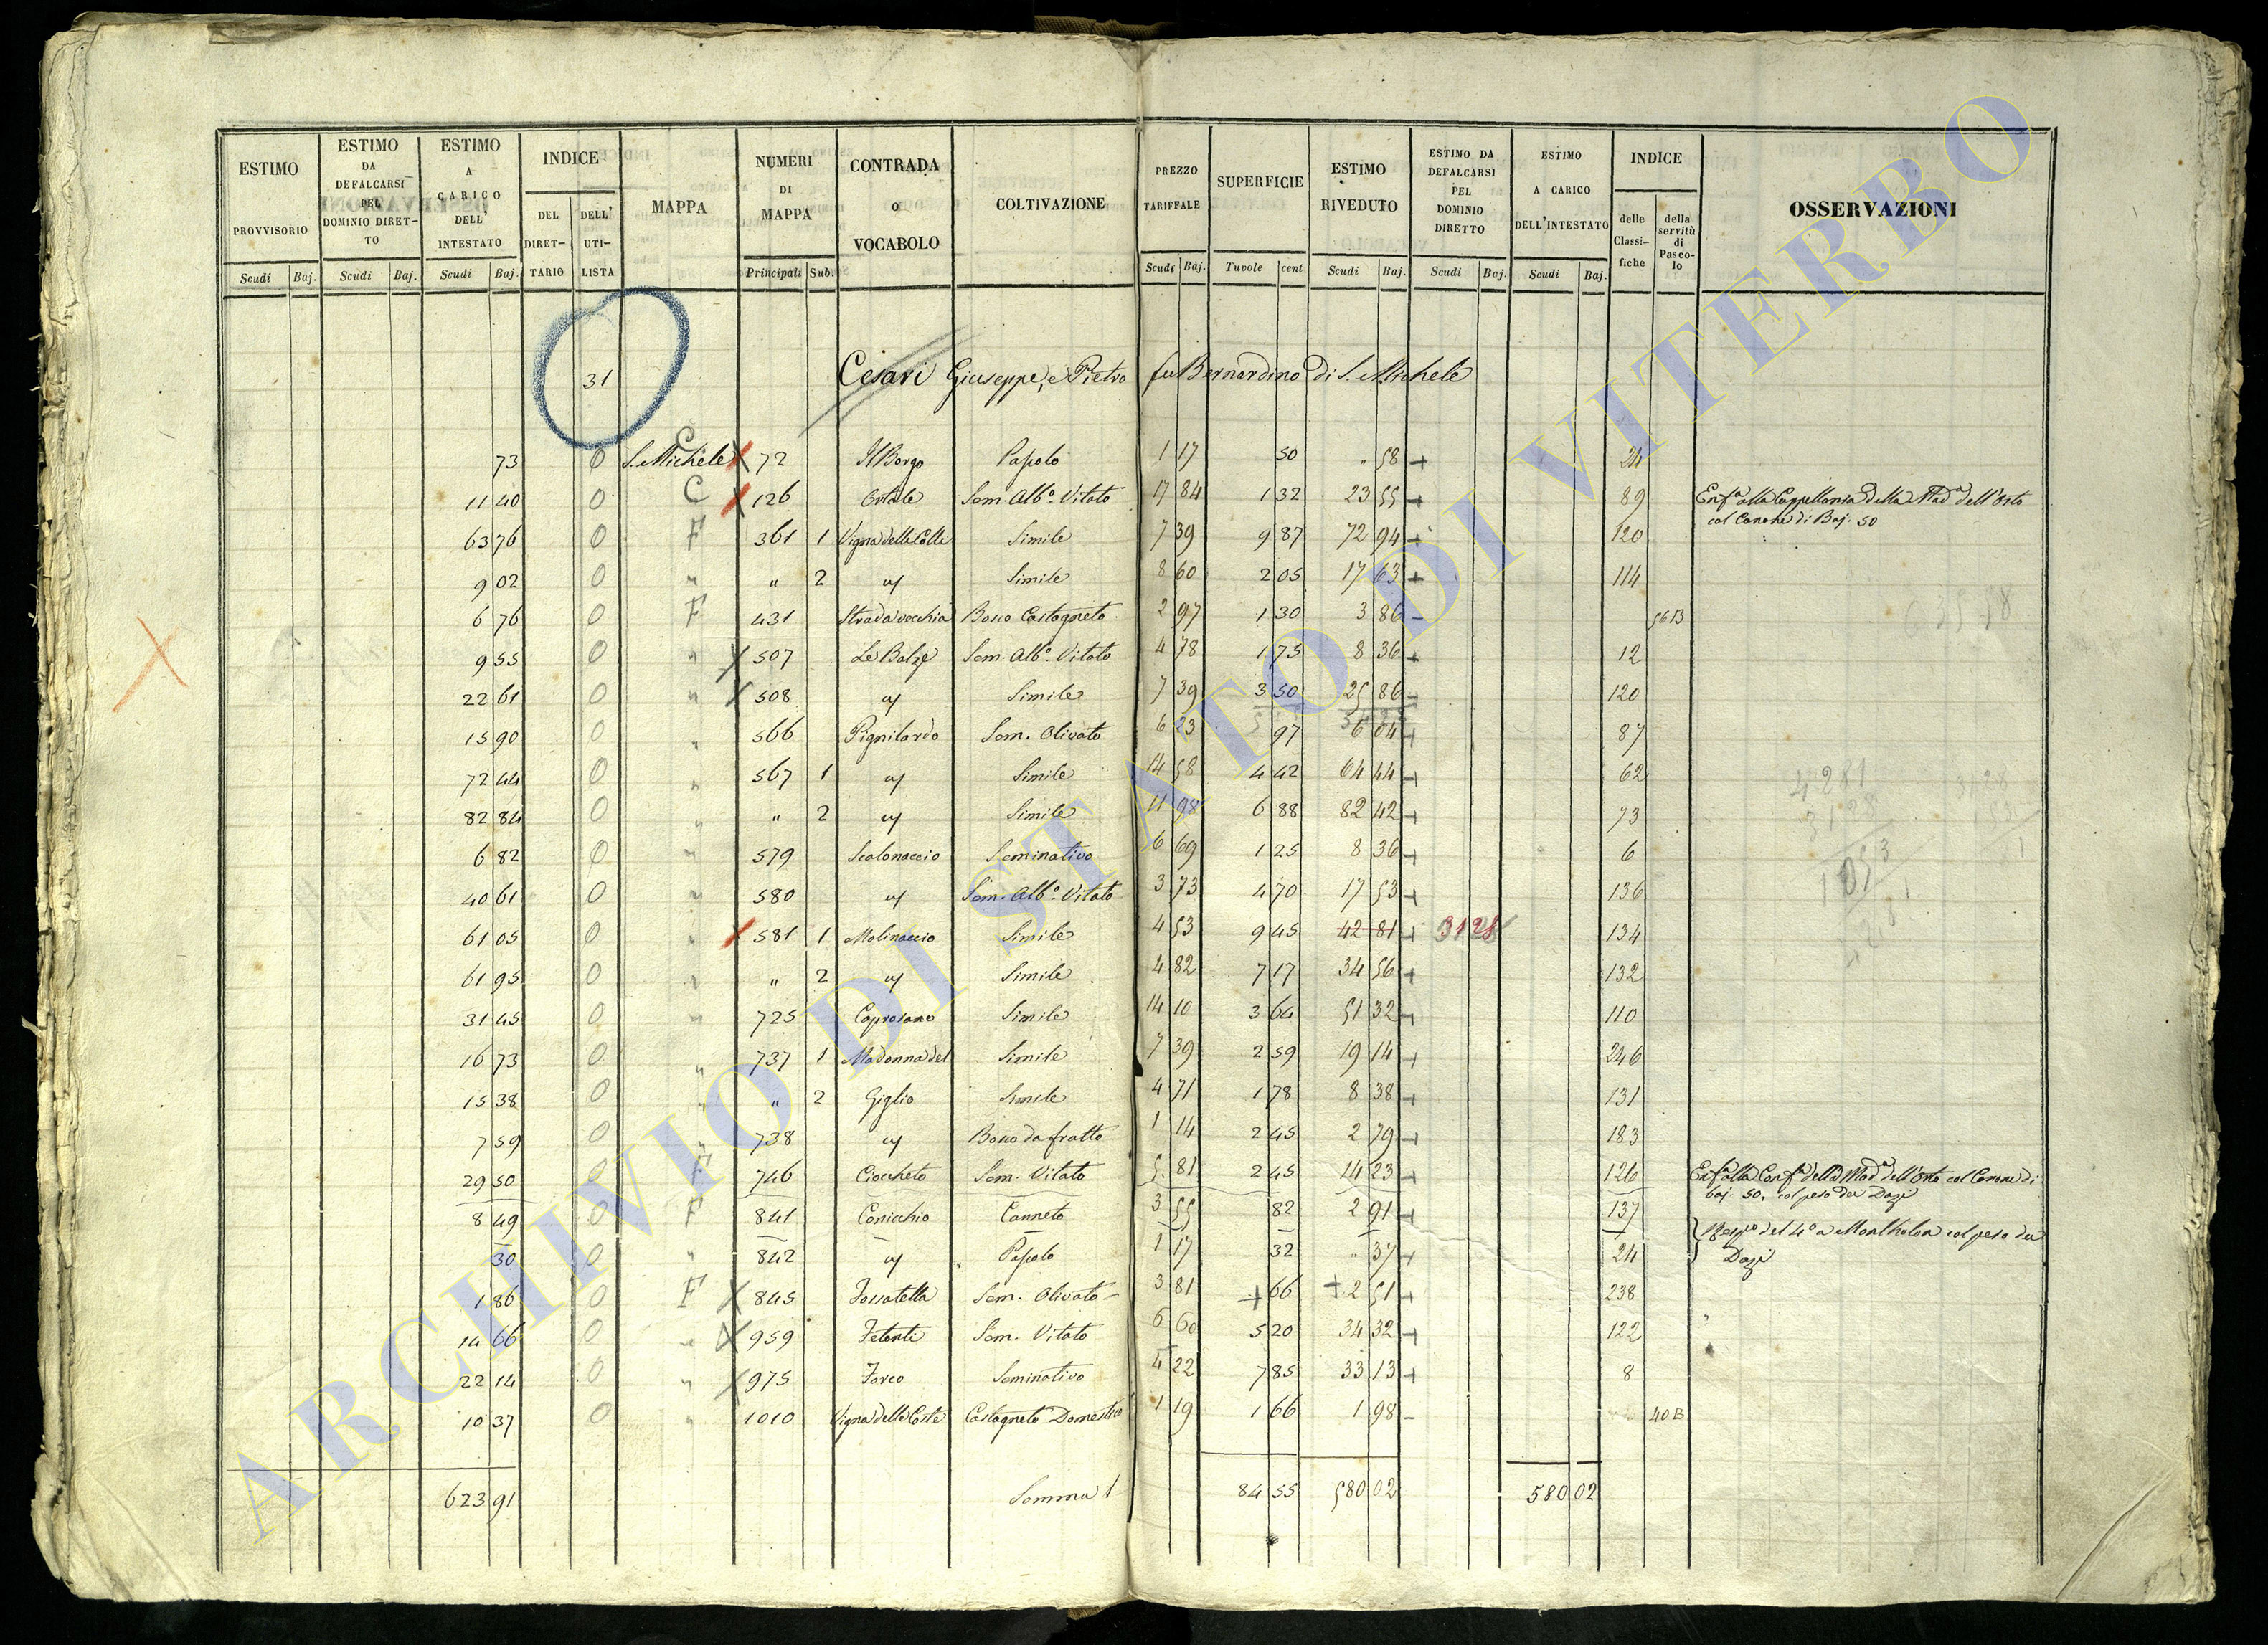 ESTIMO PROVVISORIO Scudi Baj. ESTIMO DA DEFALCARSI PEL DOMINIO DIRET-TO Scudi Baj. ESTIMO A CARICO DELL' INTESTATO Scudi Baj. INDICE DEL DIRET-TARIO DELL' UTI-LISTA MAPPA NUMERI DI MAPPA Principali Sub. CONTRADA O VOCABOLO COLTIVAZIONE PREZZO TARIFFALE Scudi Baj. SUPERFICIE Tavole cent ESTIMO RIVEDUTO Scudi Baj. ESTIMO DA DEFALCARSI PEL DOMINIO DIRETTO Scudi Baj. ESTIMO A CARICO DELL'INTESTATO Scudi Baj. INDICE delle Classi-fiche della servitù di Pasco-lo OSSERVAZIONI
31 Cesari Giuseppe, e Pietro fu Bernardino di S. Michele
73 0 S. Michele C 72 Il Borgo Pascolo 1 17 50 " 58 24
11 40 0 C 126 Sem. Alb.o Vitato 17 84 1 32 23 55 89 Enf.a alla Cappellania della Mad.a dell'Orto
col Canone di Baj. 50
63 76 0 F 361 1 Vigna delle Colle Simile 7 39 9 87 72 94 120
9 02 0 " " 2 Simile 8 60 2 05 17 63 114
6 76 0 F 431 Strada vecchia Bosco Castagneto 2 97 1 30 3 86 56B
9 55 0 " 507 Le Balze Sem. Alb.o Vitato 4 78 1 75 8 36 12
22 61 0 " 508 Simile 7 39 3 50 25 86 120
15 90 0 " 566 Pignilardo Sem. Olivato 6 23 97 6 04 87
72 44 0 " 567 1 Simile 14 58 4 42 64 44 62
82 84 0 " " 2 Simile 11 98 6 88 82 42 73
6 82 0 " 579 Scalonaccio Seminativo 6 69 1 25 8 36 6
40 61 0 " 580 Sem. Alb.o Vitato 3 73 4 70 17 53 136
61 05 0 " 581 1 Molinaccio Simile 4 53 9 45 42 81 31 28 134
61 95 0 " " 2 Simile 4 82 7 17 34 56 132
31 45 0 " 725 Simile 14 10 3 64 51 32 110
16 73 0 " 737 1 Madonna del Simile 7 39 2 59 19 14 246
15 38 0 " " 2 Giglio Simile 4 71 1 78 8 38 131
7 59 0 " 738 Bosco da frutto 1 14 2 45 2 79 183
29 50 0 F 746 Ciocheto Sem. Vitato 5 81 2 45 14 23 126 Enf.a alla Conf.a della Mad.a dell'Orto col Canone di
baj. 50, col peso dei Dazi
8 49 0 F 841 Conicchio Canneto 3 55 82 2 91 137 del 4.o a col peso dei
30 0 " 842 Pascolo 1 17 32 " 37 24 Dazi
1 86 0 F 845 Fossatella Sem. Olivato 3 81 66 2 51 238
14 66 0 " 959 Fetente Sem. Vitato 6 60 5 20 34 32 122
22 14 0 " 975 Seminativo 4 22 7 85 33 13 8
10 37 0 " 1010 Vigna delle Coste Castagneto Domestico 1 19 1 66 1 98 40B
623 91 Somma 84 55 580 02 580 02
ARCHIVIO DI STATO DI VITERBO